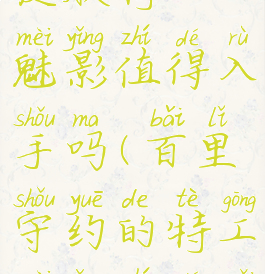 mèi yǐng zhí dé rù
魅影值得入
shǒu ma bǎi lǐ
手吗(百里
shǒu yuē de tè gōng
守约的特工